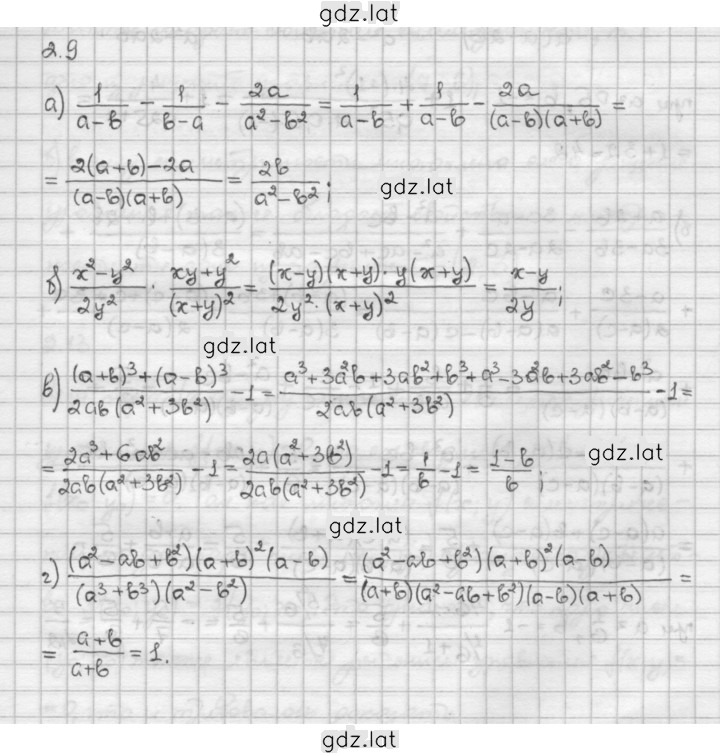 gdz.lat
2.9
а) \frac{1}{a-b} - \frac{1}{b-a} - \frac{2a}{a^2-b^2} = \frac{1}{a-b} + \frac{1}{a-b} - \frac{2a}{(a-b)(a+b)} =
= \frac{2(a+b)-2a}{(a-b)(a+b)} = \frac{2b}{a^2-b^2};
gdz.lat
б) \frac{x^2-y^2}{2y^2} · \frac{xy+y^2}{(x+y)^2} = \frac{(x-y)(x+y)·y(x+y)}{2y^2·(x+y)^2} = \frac{x-y}{2y};
gdz.lat
в) \frac{(a+b)^3+(a-b)^3}{2ab(a^2+3b^2)} - 1 = \frac{a^3+3a^2b+3ab^2+b^3+a^3-3a^2b+3ab^2-b^3}{2ab(a^2+3b^2)} - 1 =
= \frac{2a^3+6ab^2}{2ab(a^2+3b^2)} - 1 = \frac{2a(a^2+3b^2)}{2ab(a^2+3b^2)} - 1 = \frac{1}{b} - 1 = \frac{1-b}{b};
gdz.lat
gdz.lat
г) \frac{(a^2-ab+b^2)(a+b)^2(a-b)}{(a^3+b^3)(a^2-b^2)} = \frac{(a^2-ab+b^2)(a+b)^2(a-b)}{(a+b)(a^2-ab+b^2)(a-b)(a+b)} =
= \frac{a+b}{a+b} = 1.
gdz.lat